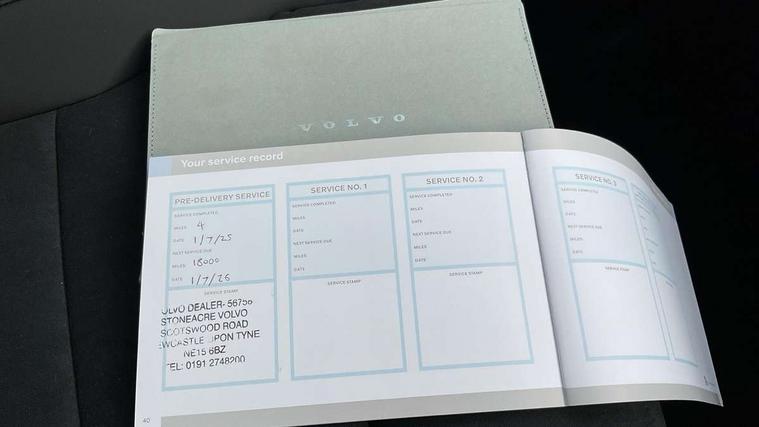 VOLVO
Your service record
PRE-DELIVERY SERVICE
SERVICE COMPLETED
MILES 4
DATE 1/7/25
NEXT SERVICE DUE
MILES 18000
DATE 1/7/26
SERVICE STAMP
OLVO DEALER- 56756
STONEACRE VOLVO
SCOTSWOOD ROAD
EWCASTLE UPON TYNE
NE15 6BZ
TEL: 0191 2748200
SERVICE NO. 1
SERVICE COMPLETED
MILES
DATE
NEXT SERVICE DUE
MILES
DATE
SERVICE STAMP
SERVICE NO. 2
SERVICE COMPLETED
MILES
DATE
NEXT SERVICE DUE
MILES
DATE
SERVICE STAMP
SERVICE NO. 3
SERVICE COMPLETED
MILES
DATE
NEXT SERVICE DUE
MILES
DATE
SERVICE STAMP
40